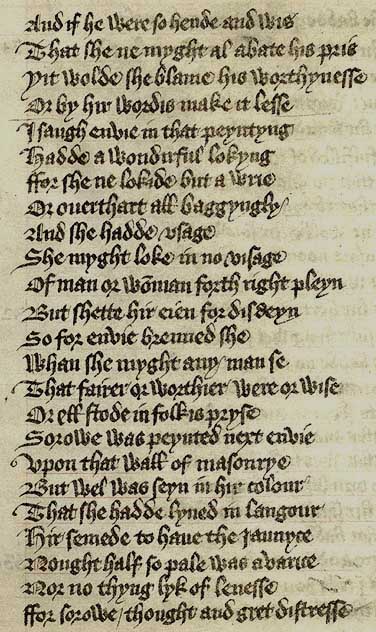 And if he were so hende and wis
That she ne myght al abate his pris
Yit wolde she blame his worthynesse
Or by hir wordis make it lesse
I saugh envie in that peyntyng
Hadde a wondirful lokyng
ffor she ne lokide but a wrie
Or overthart all baggyngly
And she hadde vsage
She myght loke in no visage
Of man or wōman forth right pleyn
But shette hir eien for disdeyn
So for envie brenned she
Whan she myght any man se
That fairer or worthier were or wise
Or ell stode in folkis pryse
Sorowe was peynted next envie
Vpon that wall of masonrye
But wel was seyn in hir colour
That she hadde lyved in langour
Hir semede to have the Iaunyce
Nought half so pale was avarice
Nor no thyng lyk of lenesse
ffor sorowe / thought and gret distresse